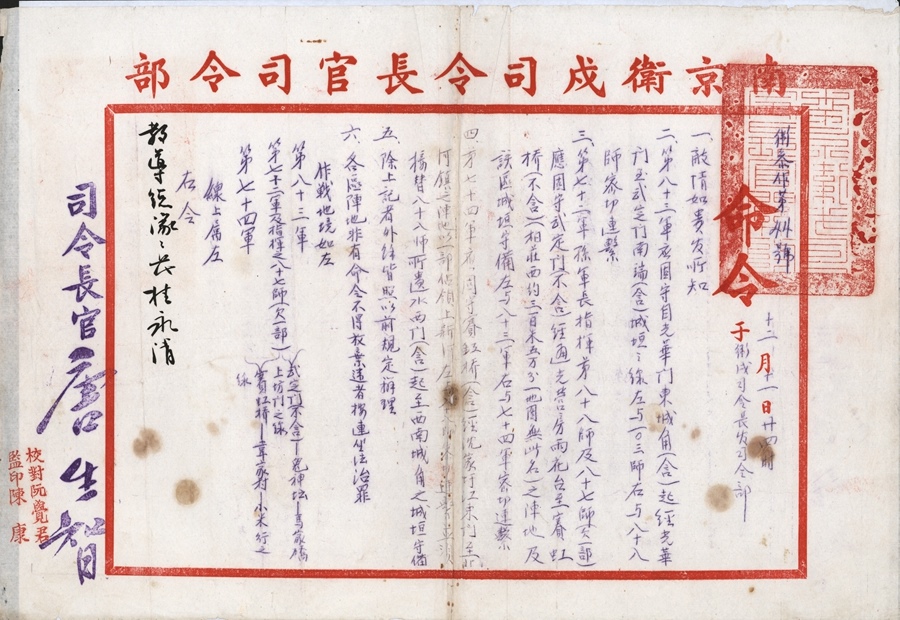 南京衛戍司令長官司令部
命令
十二月十一日廿四時
于衛戍司令長官司令部
衛參作第卅號
一、敵情如貴官所知
二、第八十三軍應固守自光華門東城角(含)起經光華
門至武定門南端(含)城垣之線左与一〇三師右与八十八
師密切連繫
三、第七十二軍孫軍長指揮第八十八師及八十七師(欠一部)
應固守武定門(不含)經通光營房雨花台至賽虹
橋(不含)(相在西約三百米五万分一地圖無此名)之陣地及
該區城垣守備左与八十三軍右与七十四軍密切連繫
四、第七十四軍應固守賽虹橋(含)經沈家圩江東門至
河鎮之陣地以一部佔領上新河
橋替八十八師所遺水西門(含)起至西南城角之城垣守備
五、除上記者外餘皆照以前規定辦理
六、各區陣地非有命令不得放棄違者按連坐法治罪
作戰地境如左
第八十三軍
第七十二軍及指揮之八十七師(欠一部)
武定門(不含)—
上坊門之線
第七十四軍
賽虹橋—
小米行之
線
線上屬左
右令
教導總隊隊長桂永清
司令長官唐生智
校對阮覺君
監印陳康